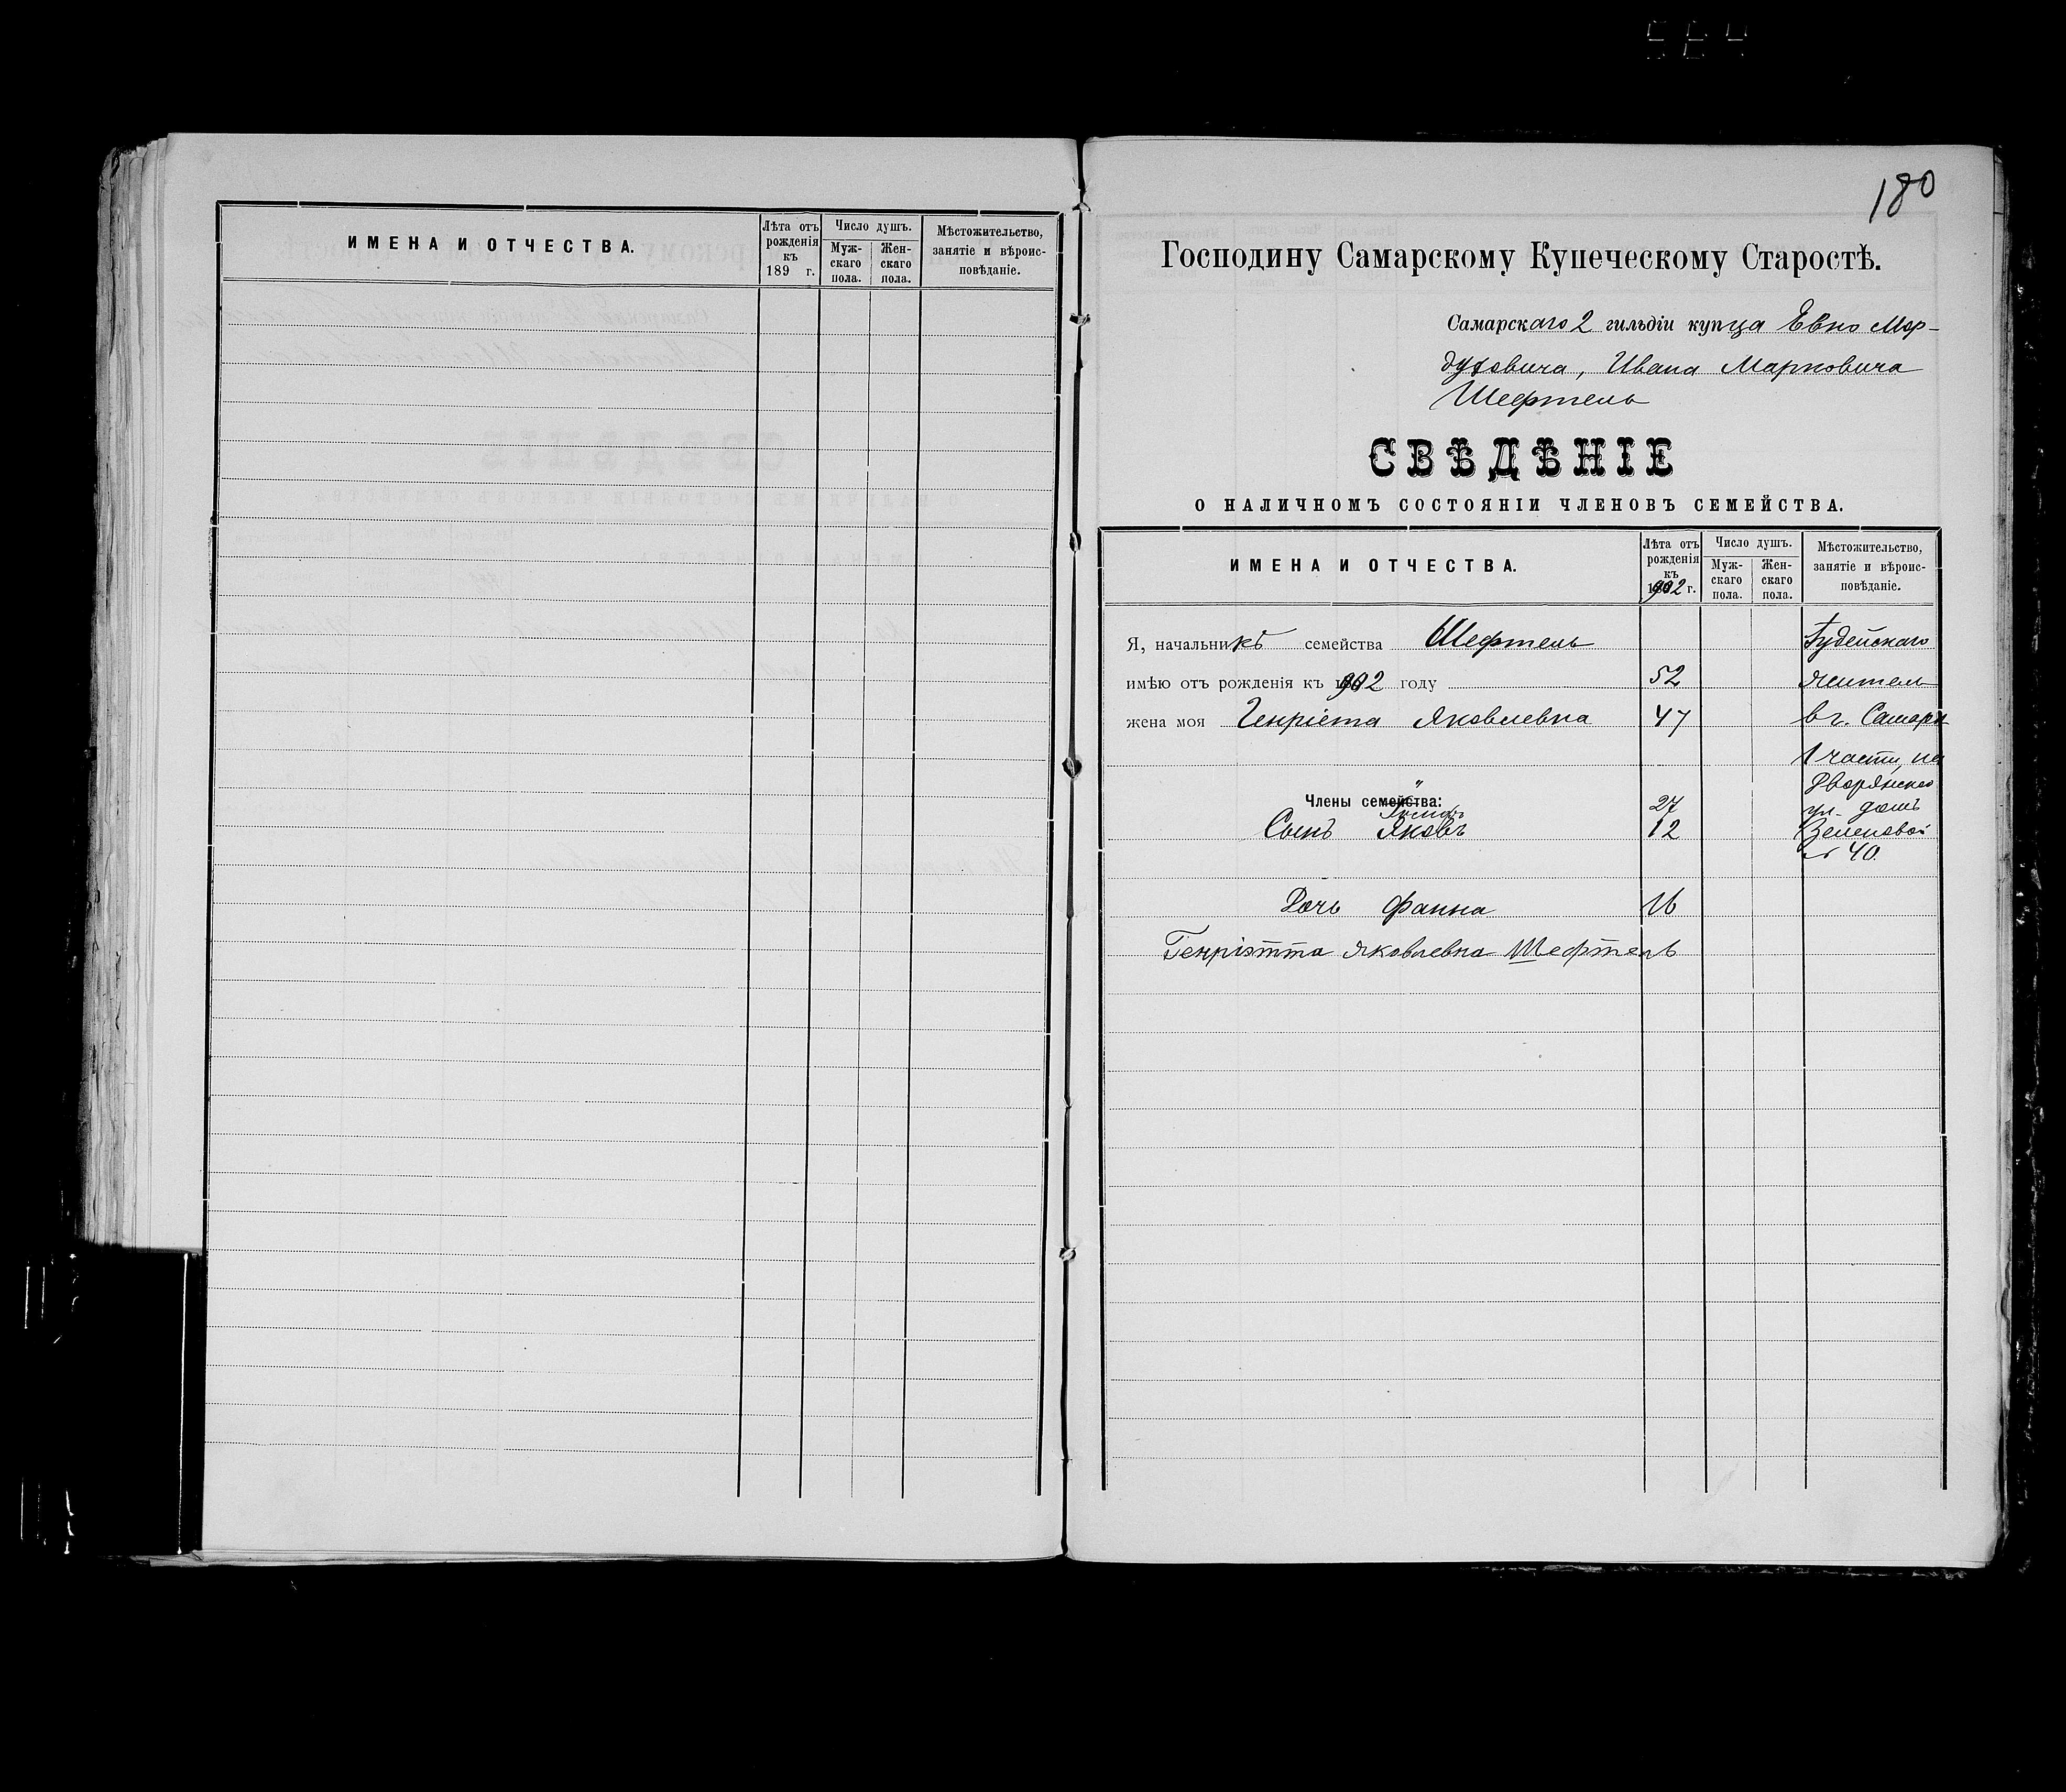 ИМЕНА И ОТЧЕСТВА.
Лѣта отъ рожденія къ 189 г.
Число душъ.
Мужскаго пола.
Женскаго пола.
Мѣстожительство, занятіе и вѣроисповѣданіе.
180
Господину Самарскому Купеческому Старостѣ.
Самарскаго 2 гильдіи купца Евно Мор-
духовича, Ивана Марковича
Шефтель
СВѢДѢНІЕ
О НАЛИЧНОМЪ СОСТОЯНІИ ЧЛЕНОВЪ СЕМЕЙСТВА.
ИМЕНА И ОТЧЕСТВА.
Лѣта отъ рожденія къ 1902 г.
Число душъ.
Мужскаго пола.
Женскаго пола.
Мѣстожительство, занятіе и вѣроисповѣданіе.
Я, начальникъ семейства Шефтель Іудейскаго
имѣю отъ рожденія къ 1902 году 52 житель
жена моя Генріета Яковлевна 47 в г. Самары
1 части, на
Дворянской
Члены семейства: 27 ул. домъ
Сынъ Яковъ 12 Зеленовой
№ 40.
Дочь Фанна 16
Генріэтта Яковлевна Шефтель